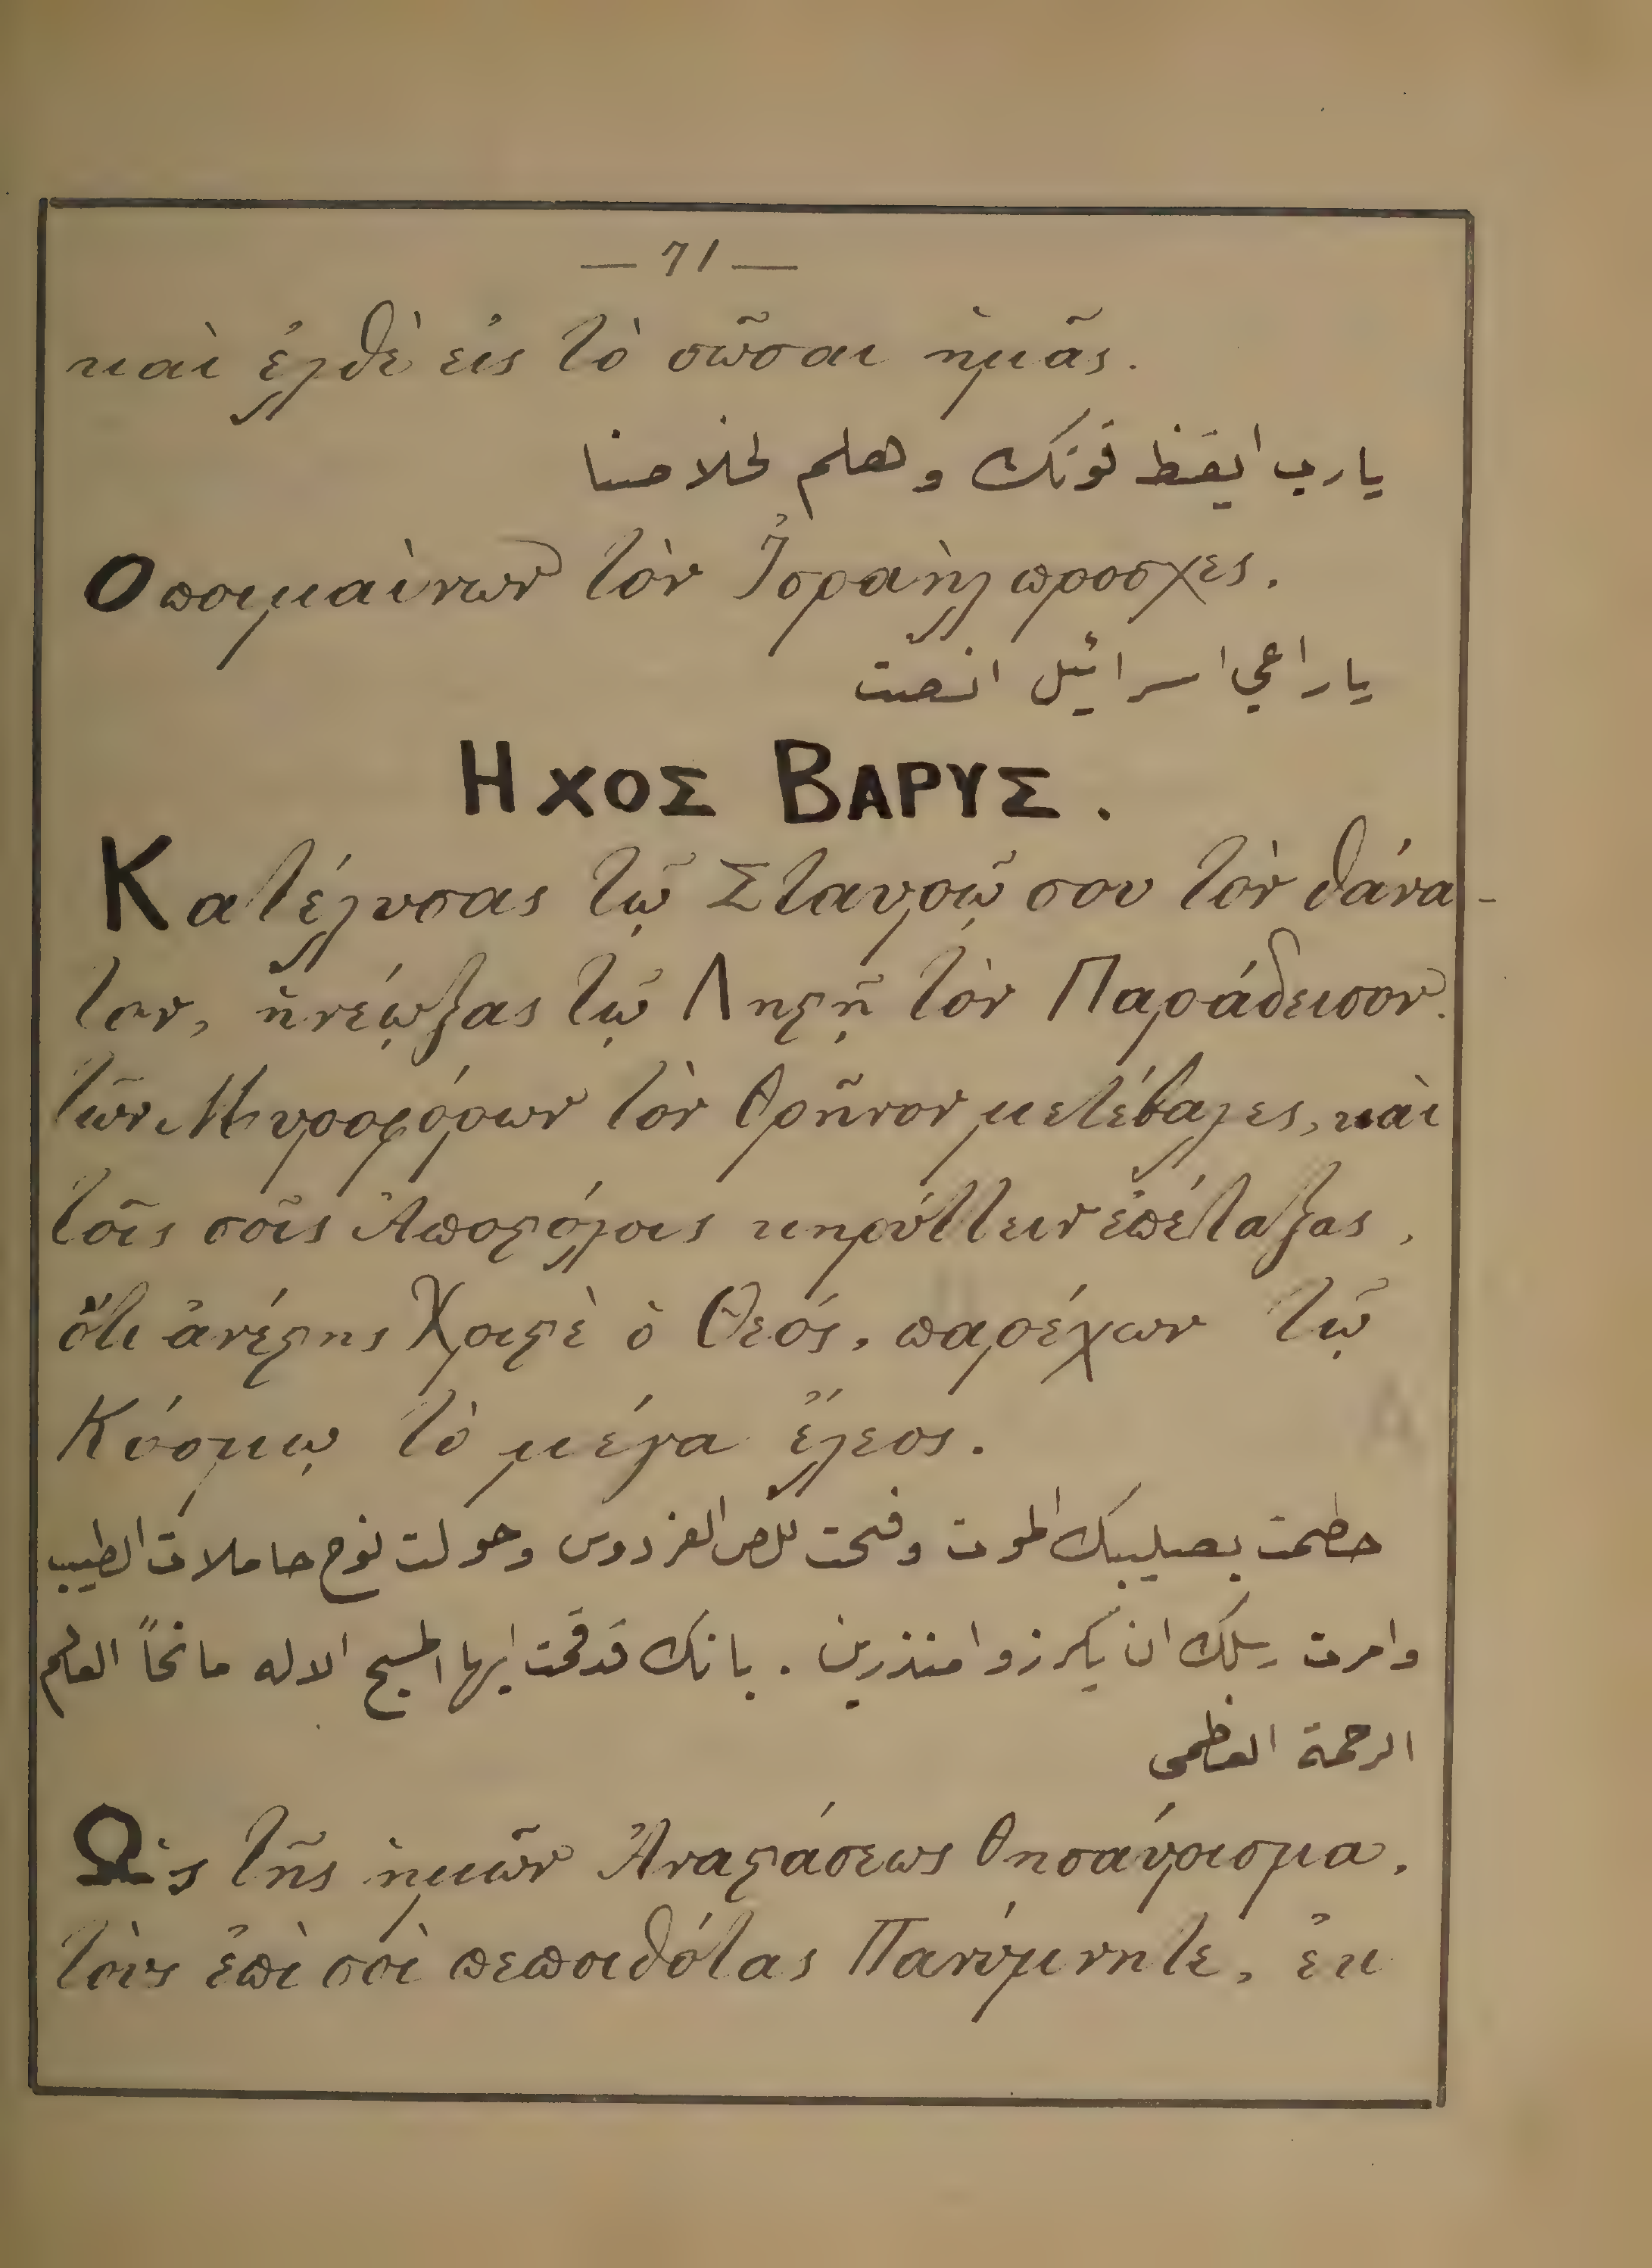 — 71 —
καὶ ἐλθὲ εἰς τὸ σῶσαι ἡμᾶς.
يارب ايقظ قوتك وهلم لخلاصنا
Ο ποιμαίνων τὸν Ἰσραὴλ προσχες.
ياراعي اسرائيل انصت
ΗΧΟΣ ΒΑΡΥΣ.
Κατέλυσας τῷ Σταυρῷ σου τὸν θάνα-
τον, ἠνέῳξας τῷ Ληϛῇ τὸν Παράδεισον.
τῶν Μυροφόρων τὸν θρῆνον μετέβαλες, καὶ
τοῖς σοῖς Ἀποϛόλοις κηρύττειν ἐπέταξας,
ὅτι ἀνέϛης Χριϛὲ ὁ Θεός, παρέχων τῷ
Κόσμῳ τὸ μέγα ἔλεος.
حطمت بصليبك الموت وفتحت للص الفردوس وحولت نوح حاملات الطيب
وامرت رسلك ان يكرزوا منذرين . بانك قد قمت ايها المسيح الاله مانحاً العالم
الرحمة العظمى
Ὡς τῆς ἡμῶν Ἀναϛάσεως θησαύρισμα,
τοὺς ἐπὶ σοὶ πεποιθότας Πανύμνητε, ἐκ